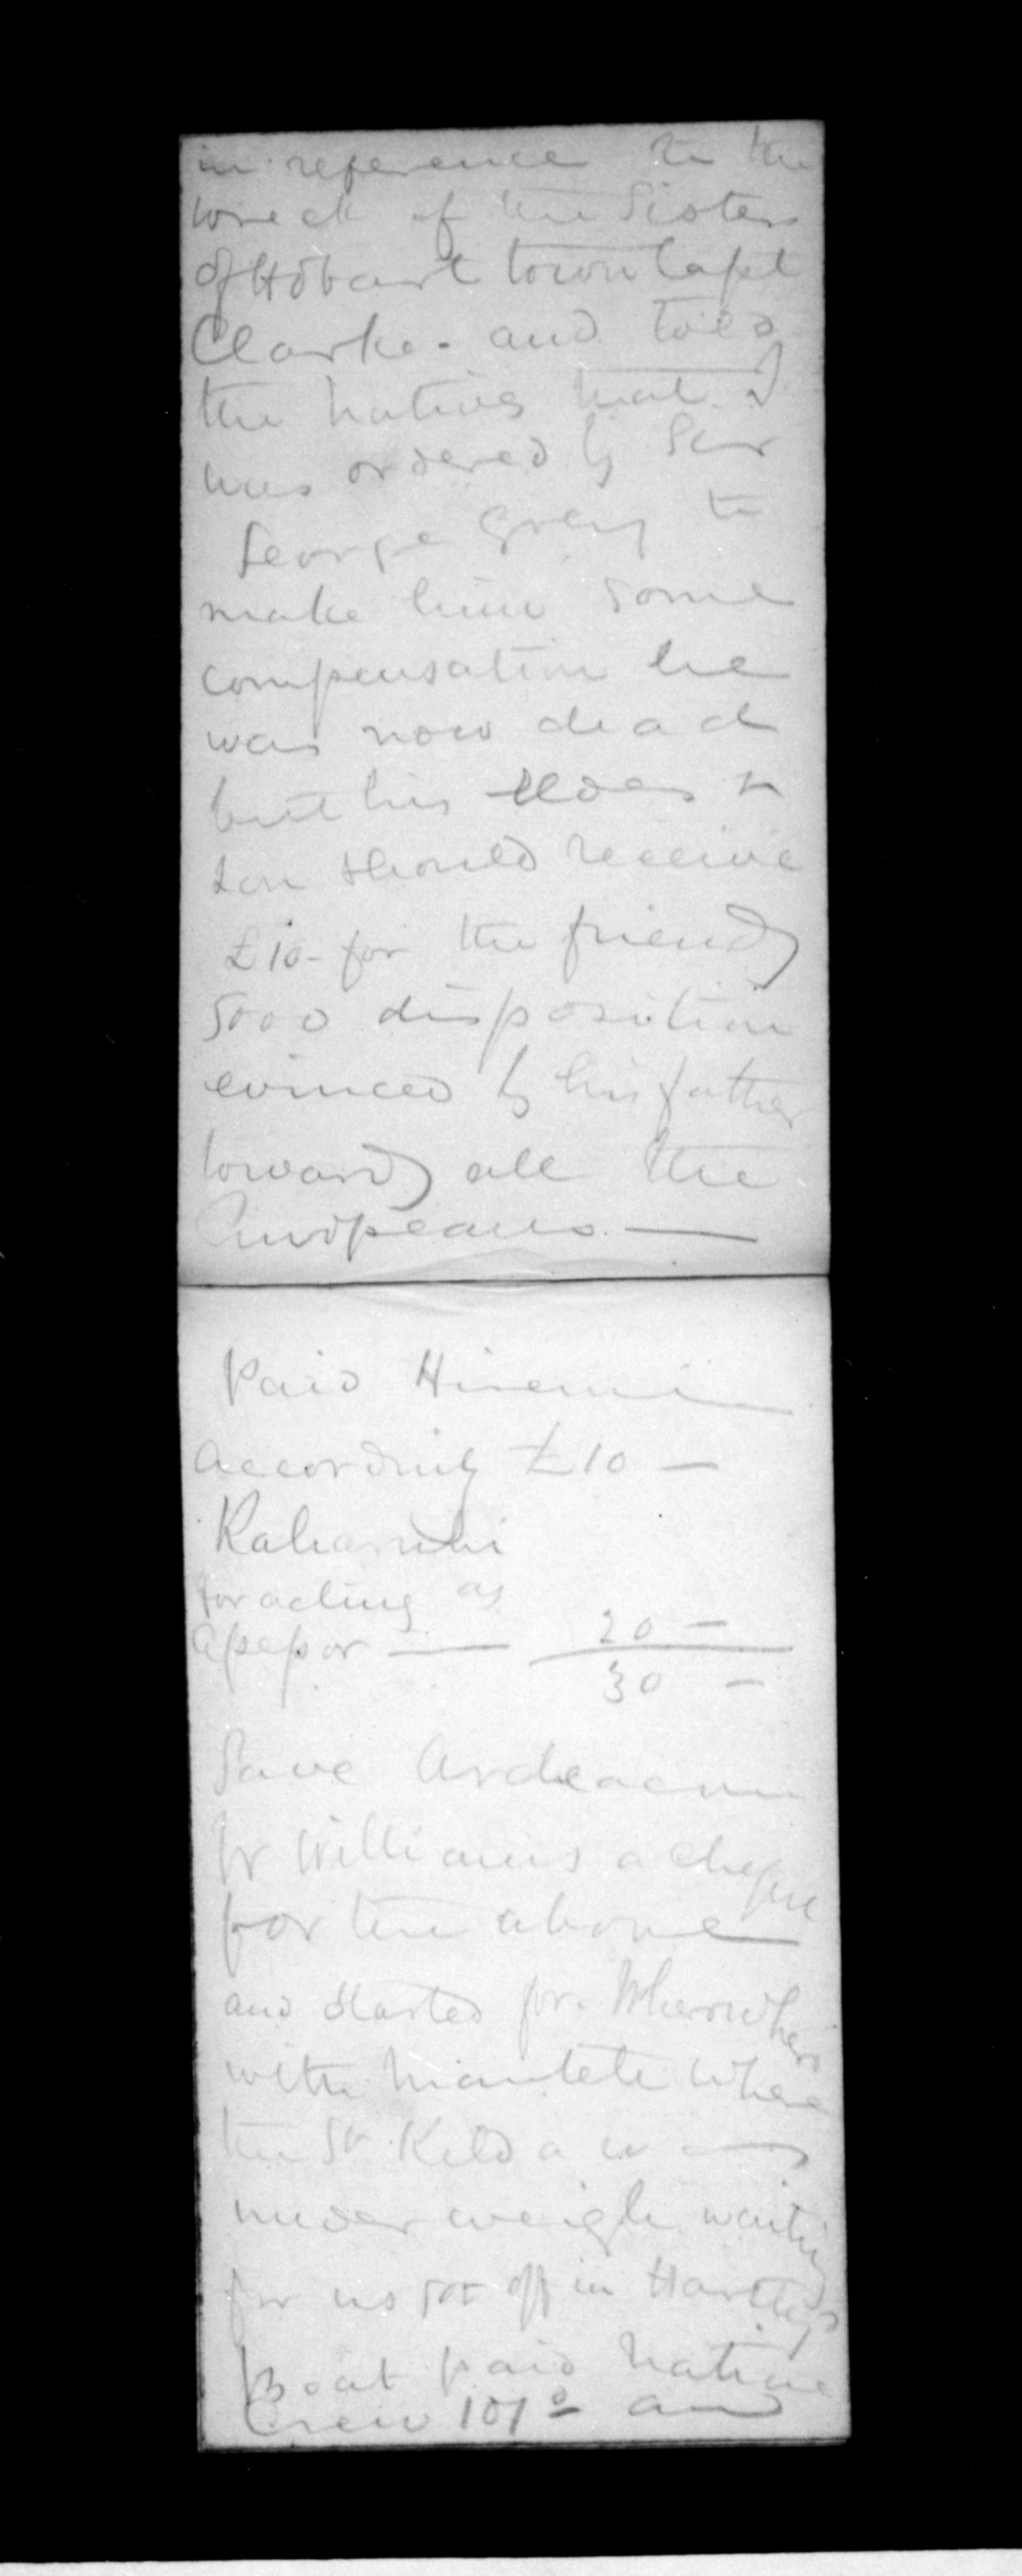 in reference to the
wreck of the Sisters
of Hobart town Capt
Clarke - and told
the natives that I
was ordered by Sir
George Grey to
make him some
compensation he
was now dead
but his eldest
son should receive
£10 - for the friendly
good disposition
evinced by his father
towards all the
Europeans. —
Paid Hiremi
accordingly £10 —
for acting as
assessor — 20 —
30 —
Gave Archdeacon
W Williams a cheque
for the above
and started for Wherowhero
with where
the St Kilda was
under weigh waiting
for us got off in Hartley's
Boat paid native
Crew 10/- and